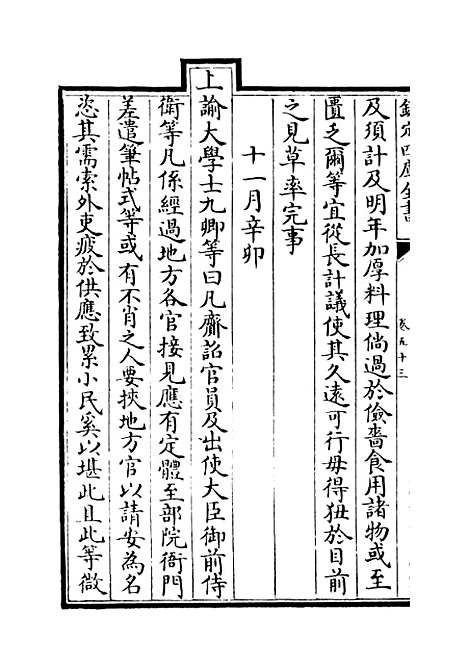 欽定四庫全書
卷五十三
及須計及明年加厚料理倘過於儉嗇食用諸物或至
匱乏爾等宜從長計議使其久遠可行毋得狃於目前
之見草率完事
十一月辛卯
上諭大學士九卿等曰凡齎詔官員及出使大臣御前侍
衛等凡係經過地方各官接見應有定體至部院衙門
差遣筆帖式等或有不肖之人要挾地方官以請安為名
恣其需索外吏疲於供應致累小民奚以堪此且此等微